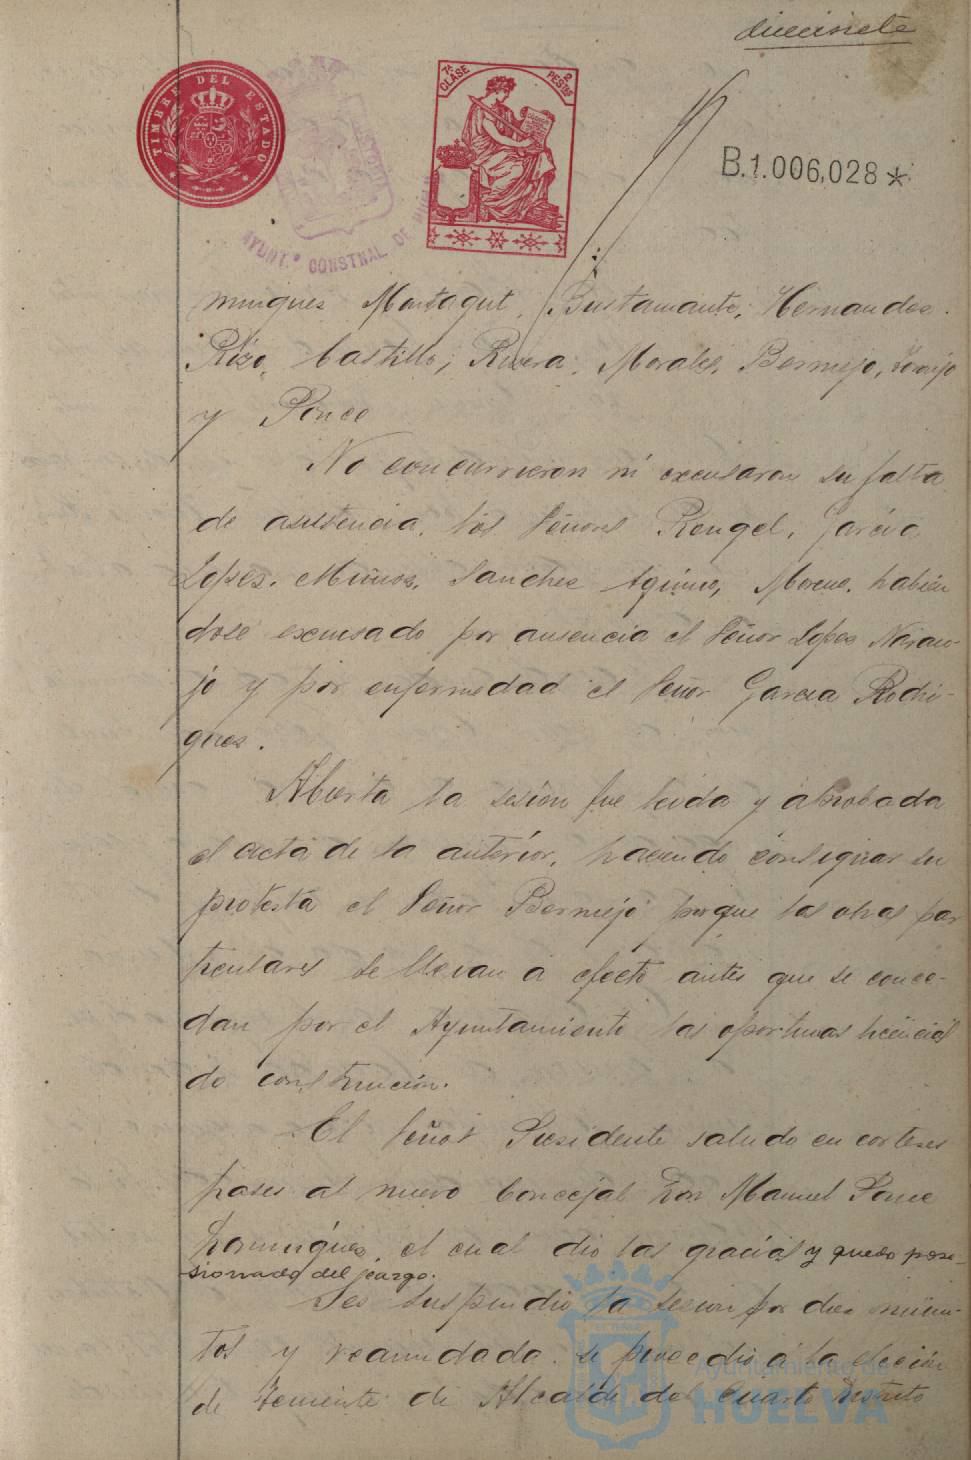 diecisiete
TIMBRE DEL ESTADO
7ª CLASE 2 PESTAS
AYUNT.º CONSTNAL DE
B.1.006,028*
mingues Montagut, Bustamante, Hernandes.
Rizo, Castillo, Rivera, Morales, Bermejo, Naranjo
y Ponce
No concurrieron ni excusaron su falta
de asistencia, los Señores Rengel, Garcia
Lopes, Muños, Sanches Moreno, habien
dose excusado por ausencia el Señor Lopes Naran-
jo y por enfermedad el Señor Garcia Rodri-
gues.
Abierta la sesion fue leida y aprobada
el acta de la anterior, haciendo consignar su
protesta el Señor Bermejo porque las obras par
ticulares se llevan a efecto antes que se conce-
dan por el Ayuntamiento las oportunas licencias
de construcción.
El Señor Presidente saludo en corteses
frases al nuevo Concejal Don Manuel Ponce
Domingues, el cual dio las gracias y quedo pose-
sionado del cargo.
Se suspendio la sesion por dies minu-
tos y reanudada se procedio á la elección
de Teniente de Alcalde del Cuarto Distrito
Ayuntamiento de
HUELVA